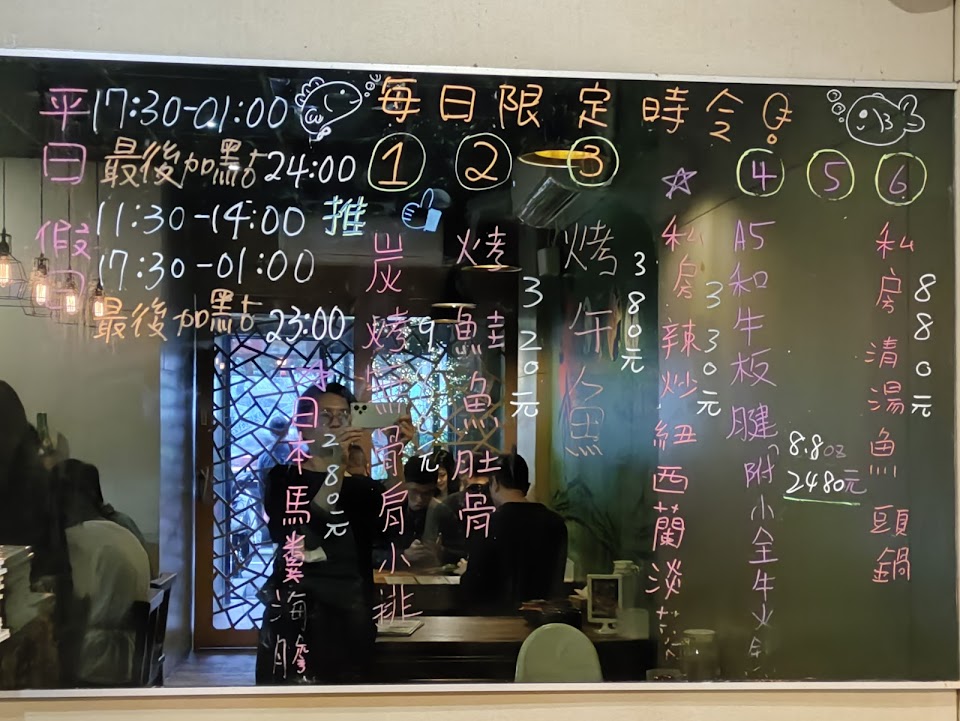 平日 17:30-01:00
最後加點 24:00
假日 11:30-14:00
17:30-01:00
最後加點 23:00
每日限定時令
推
日本馬糞海膽
280元
①
炭烤無骨肩小排
②
烤鮭魚肚骨
320元
③
烤午魚
380元
私房辣炒紐西蘭淡菜
330元
④
A5和牛板腱
附小全牛火
8.8oz
2480元
⑤
⑥
私房清湯魚頭鍋
880元